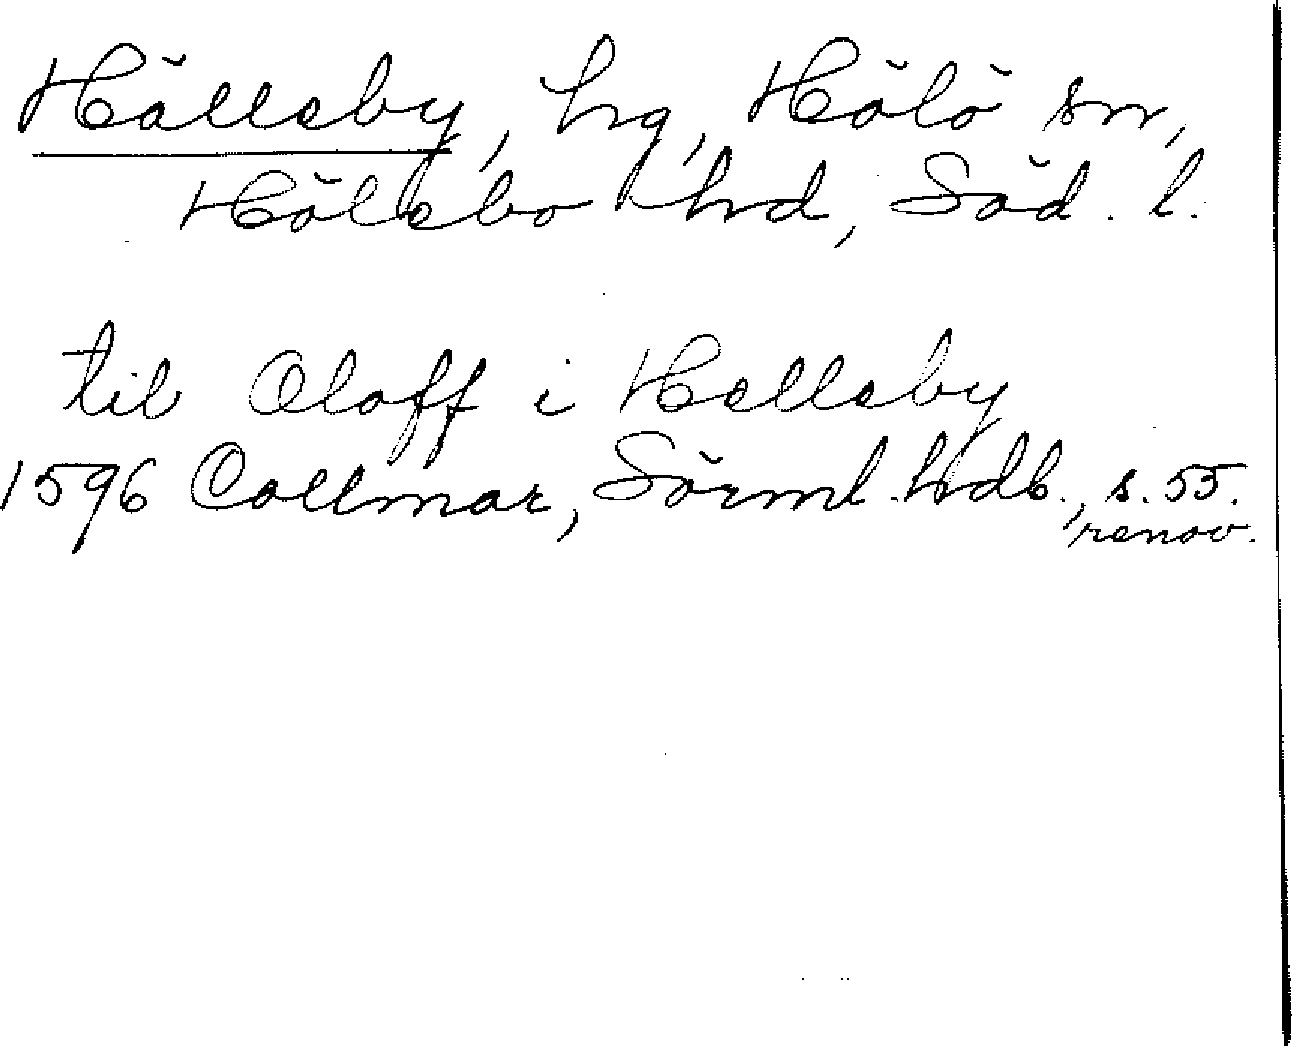 Hälleby, hg, Hölö sn,
Hölebo hd, Söd. l.
til Oloff i Helleby
1596 Collmar, Sörml. hdb., s. 55.
renov.